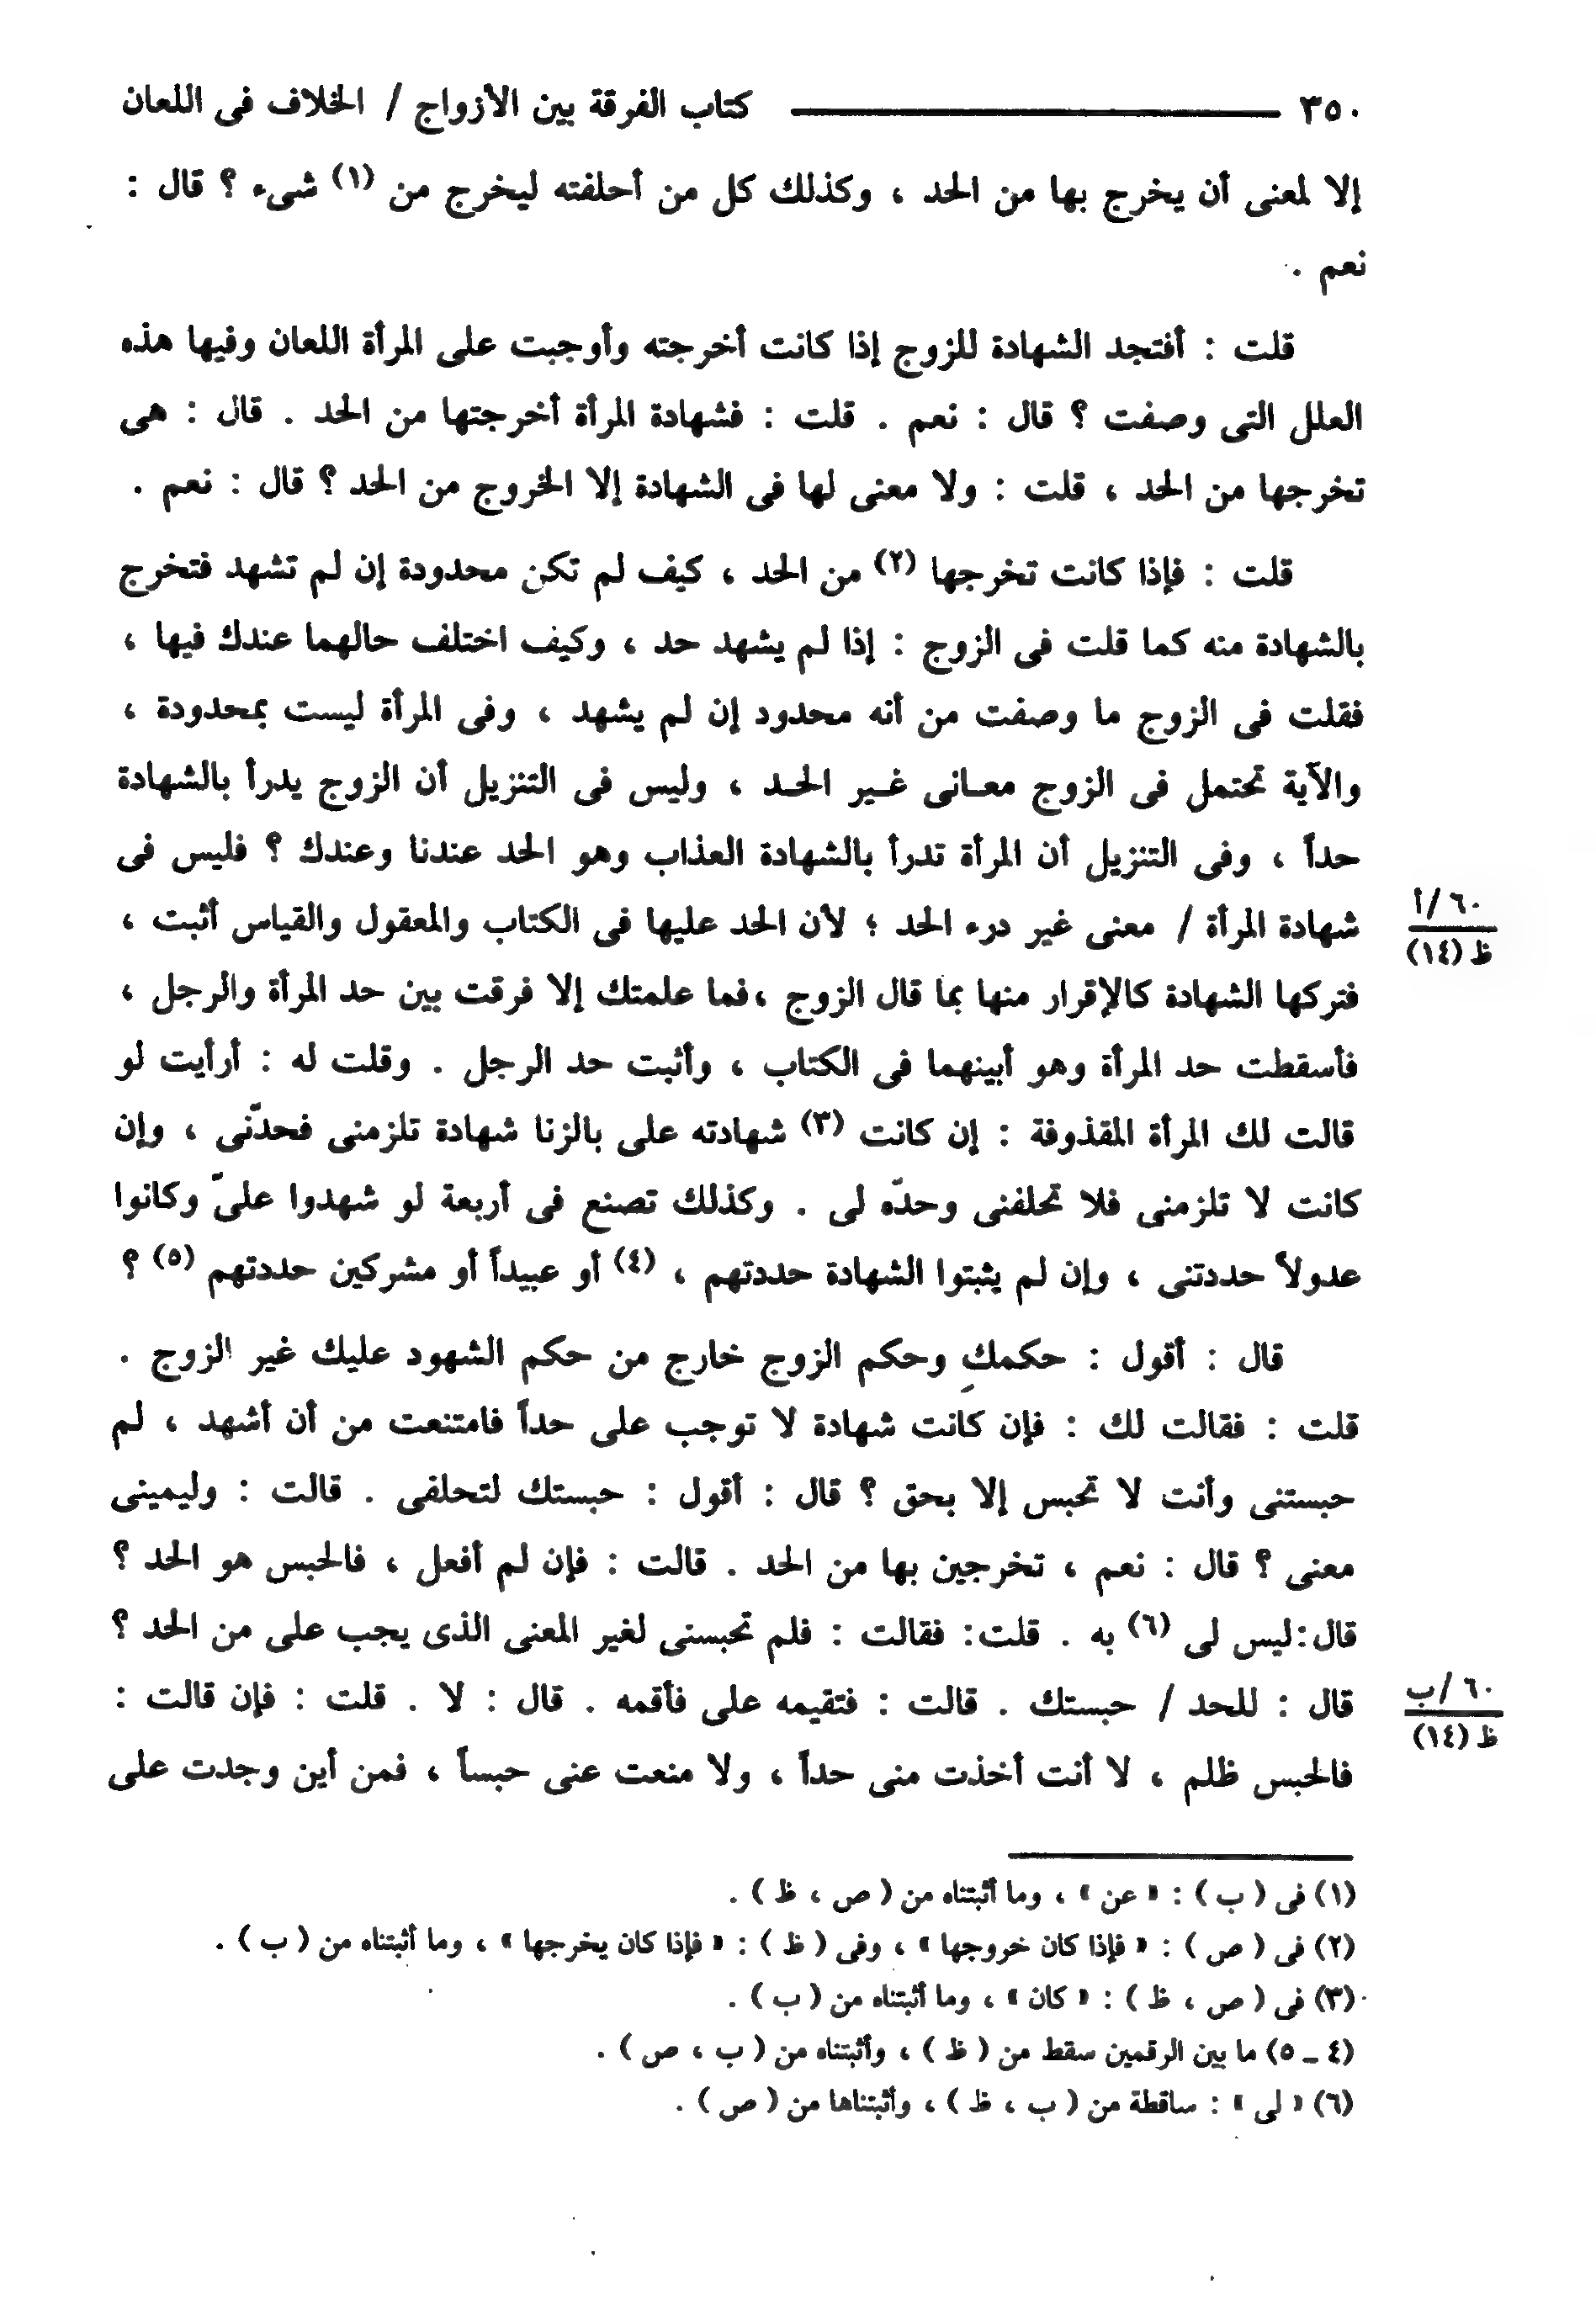 ٣٥٠ كتاب الفرقة بين الأزواج / الخلاف فى اللعان
إلا لمعنى أن يخرج بها من الحد ، وكذلك كل من أحلفته ليخرج من (١) شىء ؟ قال :
نعم .
قلت : أفتجد الشهادة للزوج إذا كانت أخرجته وأوجبت على المرأة اللعان وفيها هذه
العلل التى وصفت ؟ قال : نعم . قلت : فشهادة المرأة أخرجتها من الحد . قال : هى
تخرجها من الحد ، قلت : ولا معنى لها فى الشهادة إلا الخروج من الحد ؟ قال : نعم .
قلت : فإذا كانت تخرجها (٢) من الحد ، كيف لم تكن محدودة إن لم تشهد فتخرج
بالشهادة منه كما قلت فى الزوج : إذا لم يشهد حد ، وكيف اختلف حالهما عندك فيها ،
فقلت فى الزوج ما وصفت من أنه محدود إن لم يشهد ، وفى المرأة ليست بمحدودة ،
والآية تحتمل فى الزوج معـانى غـير الحـد ، وليس فى التنزيل أن الزوج يدرأ بالشهادة
حداً ، وفى التنزيل أن المرأة تدرأ بالشهادة العذاب وهو الحد عندنا وعندك ؟ فليس فى
شهادة المرأة / معنى غير درء الحد ؛ لأن الحد عليها فى الكتاب والمعقول والقياس أثبت ،
٦٠/أ
ظ (١٤)
فتركها الشهادة كالإقرار منها بما قال الزوج ،فما علمتك إلا فرقت بين حد المرأة والرجل ،
فأسقطت حد المرأة وهو أبينهما فى الكتاب ، وأثبت حد الرجل . وقلت له : أرأيت لو
قالت لك المرأة المقذوفة : إن كانت (٣) شهادته على بالزنا شهادة تلزمنى فحدّنى ، وإن
كانت لا تلزمنى فلا تحلفنى وحدّه لى . وكذلك تصنع فى أربعة لو شهدوا علىّ وكانوا
عدولاً حددتنى ، وإن لم يثبتوا الشهادة حددتهم ، (٤) أو عبيداً أو مشركين حددتهم (٥) ؟
قال : أقول : حكمكِ وحكم الزوج خارج من حكم الشهود عليك غير الزوج .
قلت : فقالت لك : فإن كانت شهادة لا توجب على حداً فامتنعت من أن أشهد ، لم
حبستنى وأنت لا تحبس إلا بحق ؟ قال : أقول : حبستك لتحلفى . قالت : وليمينى
معنى ؟ قال : نعم ، تخرجين بها من الحد . قالت : فإن لم أفعل ، فالحبس هو الحد ؟
قال:ليس لى (٦) به . قلت: فقالت : فلم تحبسنى لغير المعنى الذى يجب على من الحد ؟
قال : للحد / حبستك . قالت : فتقيمه على فأقمه . قال : لا . قلت : فإن قالت :
٦٠/ب
ظ (١٤)
فالحبس ظلم ، لا أنت أخذت منى حداً ، ولا منعت عنى حبساً ، فمن أين وجدت على
(١) فى ( ب ) : « عن » ، وما أثبتناه من ( ص ، ظ ) .
(٢) فى ( ص ) : « فإذا كان خروجها » ، وفى ( ظ ) : « فإذا كان يخرجها » ، وما أثبتناه من ( ب ) .
(٣) فى ( ص ، ظ ) : « كان » ، وما أثبتناه من ( ب ) .
(٤ ــ ٥) ما بين الرقمين سقط من ( ظ ) ، وأثبتناه من ( ب ، ص ) .
(٦) « لى » : ساقطة من ( ب ، ظ ) ، وأثبتناها من ( ص ) .